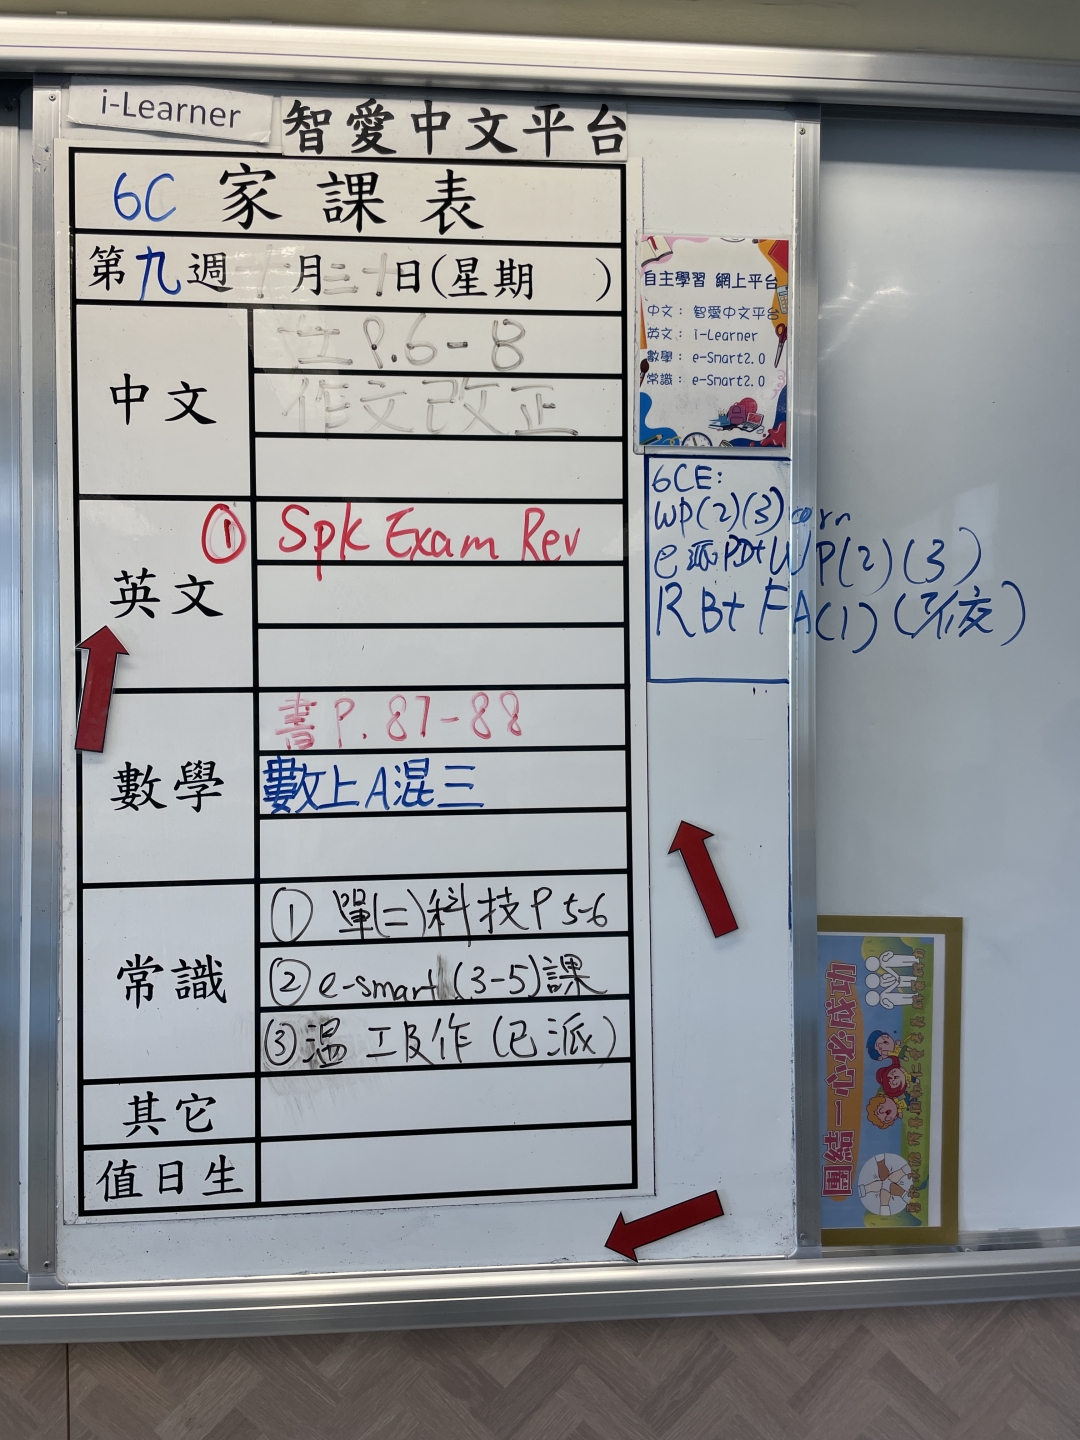 i-Learner
智愛中文平台
6C 家課表
第九週 十月三十日(星期 )
中文
P.6-8
作文改正
英文
① Spk Exam Rev
數學
書P.87-88
數上A混三
常識
① 單(二)科技P 5-6
② e-smart (3-5)課
③ 溫工及作(已派)
其它
值日生
自主學習 網上平台
中文: 智愛中文平台
英文: i-Learner
數學: e-Smart2.0
常識: e-Smart2.0
6CE:
WP(2)(3) corr
e派PD+WP(2)(3)
RB+FA(1)
團結一心必成功